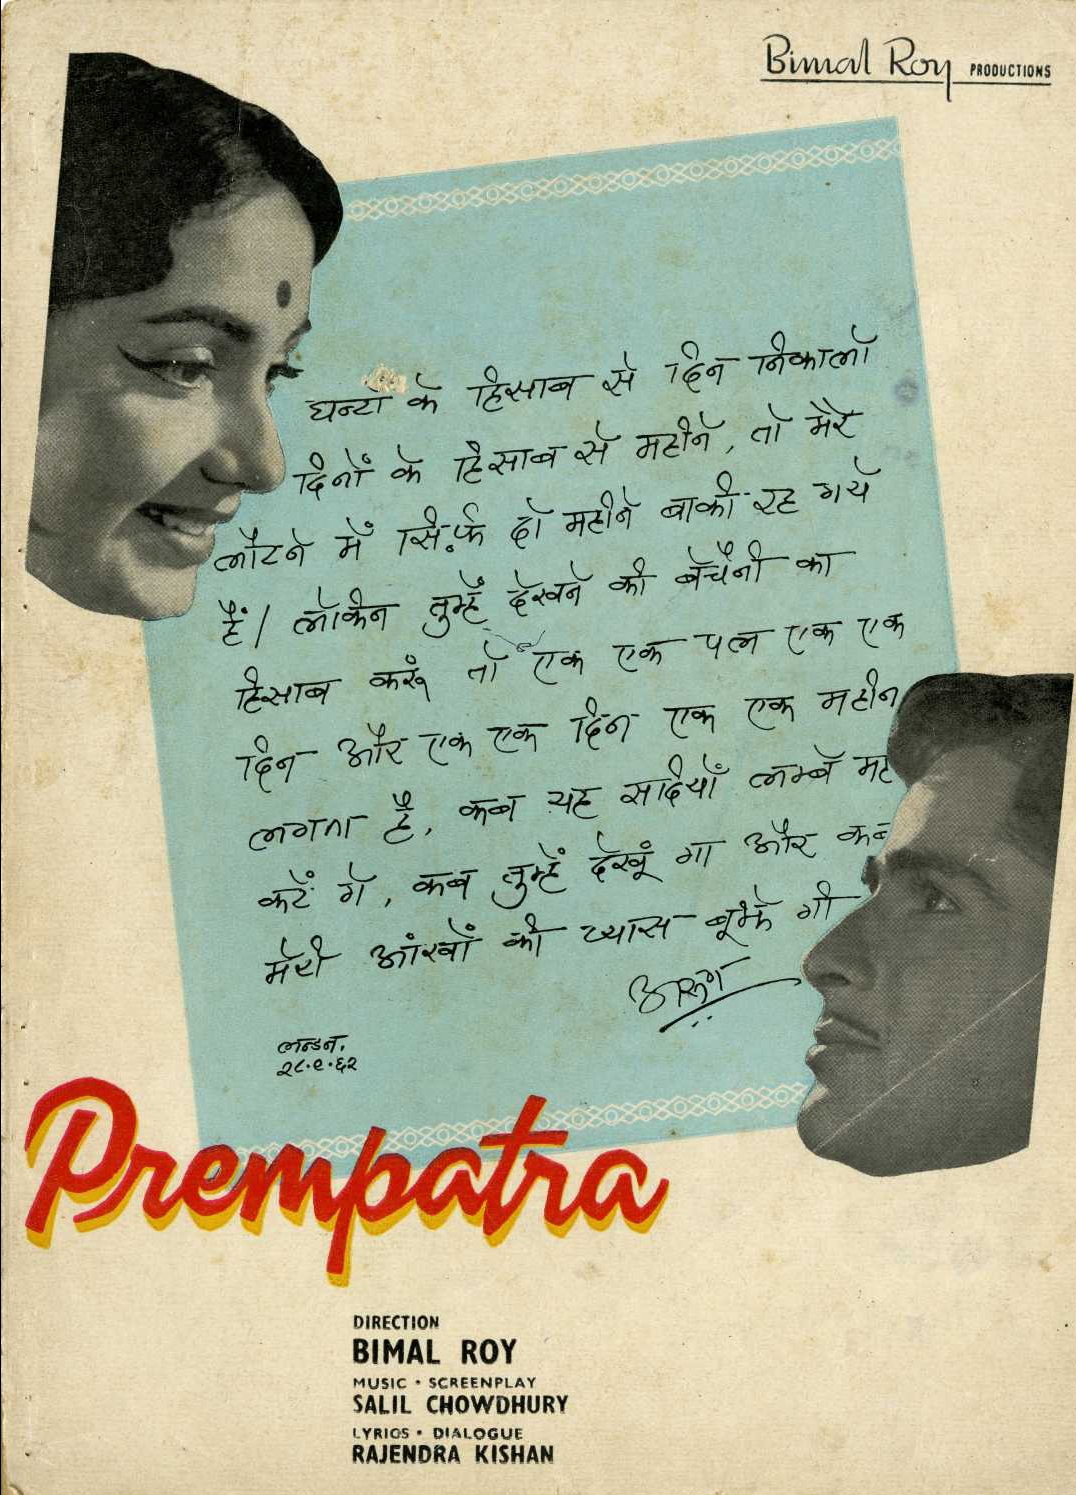 Bimal Roy PRODUCTIONS
घन्टों के हिसाब से दिन निकालो
दिनों के हिसाब से महीने, तो मेरे
लौटने में सिर्फ़ दो महीने बाकी रह गये
हैं। लेकिन तुम्हें देखने की बेचैनी का
हिसाब करूं तो एक एक पल एक एक
दिन और एक एक दिन एक एक महीन
लगता है, कब यह सदियों लम्बे मह
कटें गे, कब तुम्हें देखूं गा और कब
मेरी आंखों की प्यास बूझे गी
अरुण
लन्डन.
२८·९·६२
Prempatra
DIRECTION
BIMAL ROY
MUSIC • SCREENPLAY
SALIL CHOWDHURY
LYRICS • DIALOGUE
RAJENDRA KISHAN